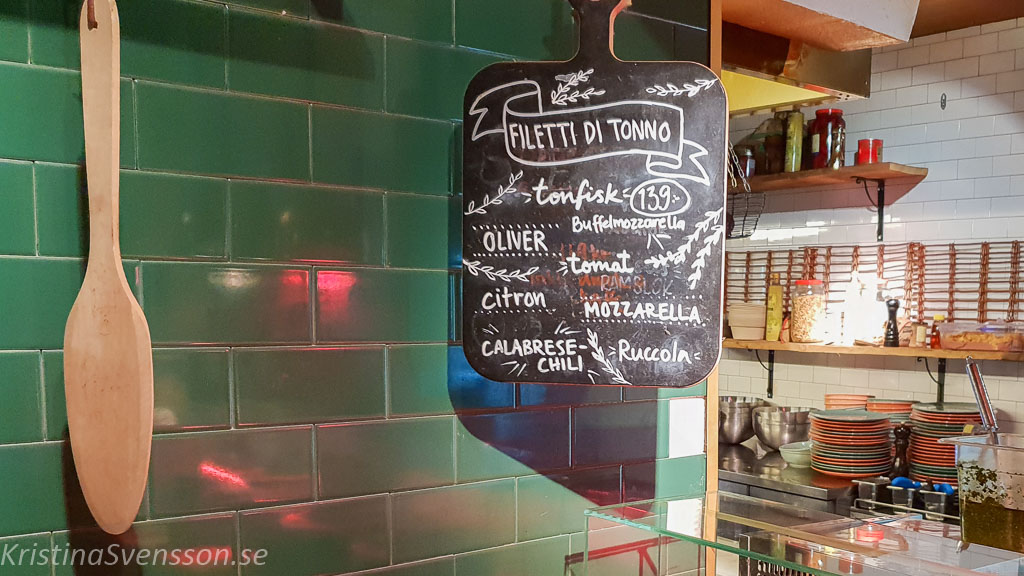 FILETTI DI TONNO
tonfisk 139:-
Buffelmozzarella
OLIVER
tomat
citron
MOZZARELLA
CALABRESE-
CHILI
Ruccola
KristinaSvensson.se